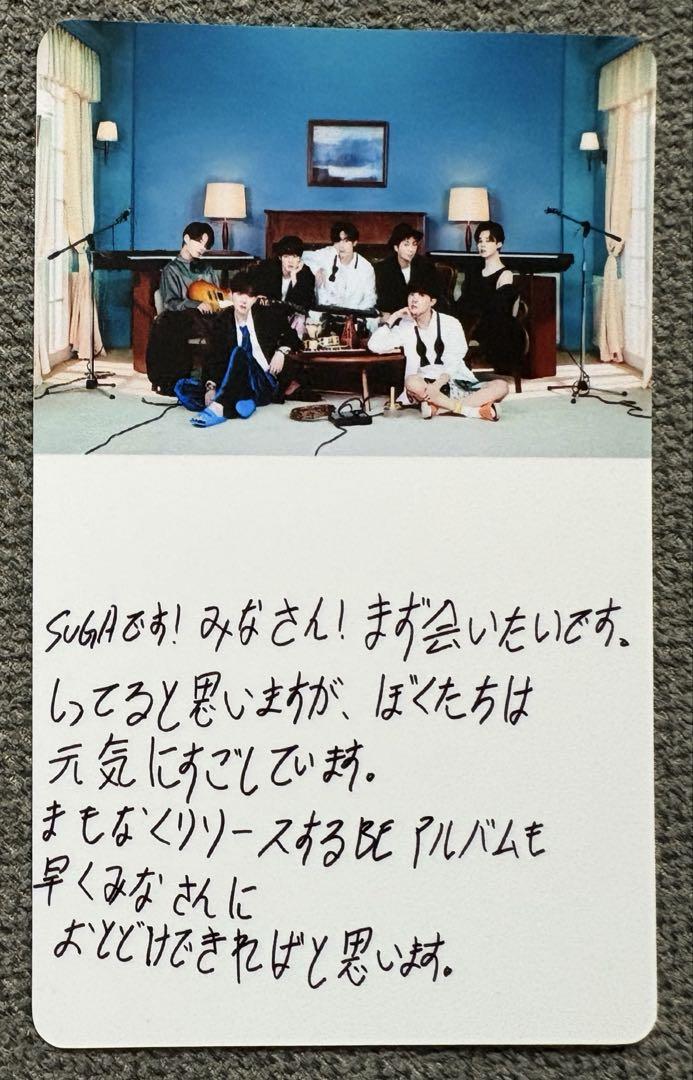 SUGAです! みなさん! まず会いたいです。
しってると思いますが、ぼくたちは
元気にすごしています。
まもなくリリースするBE アルバムも
早くみなさんに
おとどけできればと思います。